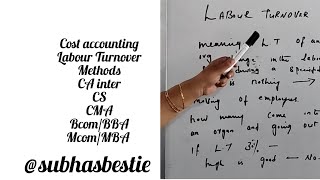 Cost accounting
Labour Turnover
Methods
CA inter
CS
CMA
Bcom/BBA
Mcom/MBA
@subhasbestie
LABOUR TURNOVER
meaning LT of an
org in the labo
during a specified
is nothing →
mixing of employees
how many come into
an organ and going out
if LT 3% –
high is good – No